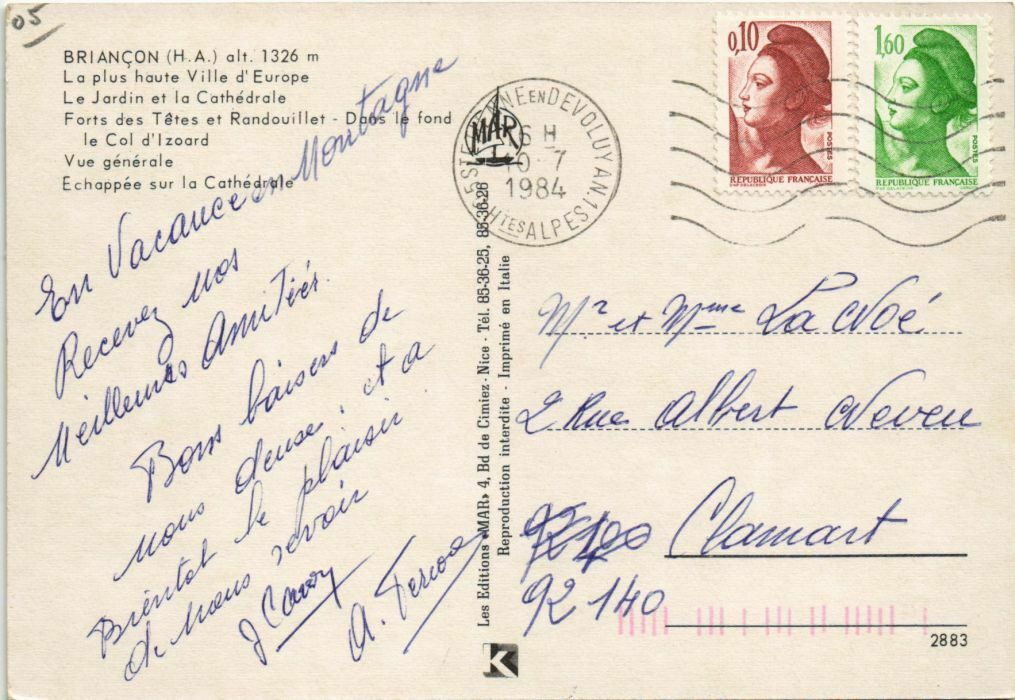 05
BRIANÇON (H.A.) alt. 1326 m
La plus haute Ville d'Europe
Le Jardin et la Cathédrale
Forts des Têtes et Randouillet - Dans le fond
le Col d'Izoard
Vue générale
Echappée sur la Cathédrale
En Vacance en Montagne
Recevez nos
Meilleures Amitiés.
Bons baisers de
nous deux et a
Bientot le plaisir
de nous revoir
MAR
EN DEVOLUY AN.1
HTES ALPES
16 H
10-7
1984
0,10
POSTES
REPUBLIQUE FRANÇAISE
1,60
POSTES
REPUBLIQUE FRANÇAISE
Les Editions «MAR» 4, Bd de Cimiez - Nice - Tél. 85-36-25, 85-36-26
Reproduction interdite - Imprimé en Italie
Mr et Mme La Noé
2 Rue Albert Neveu
Clamart
92 140
2883
K